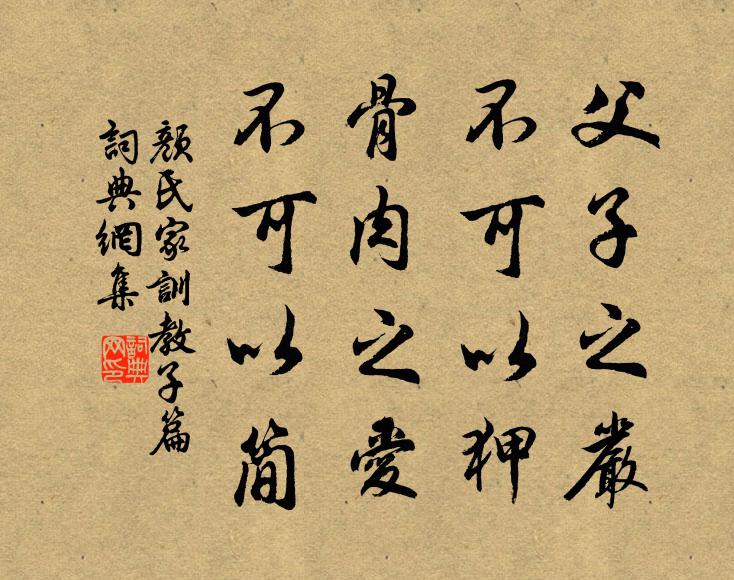 父子之嚴
不可以狎
骨肉之愛
不可以簡
顏氏家訓教子篇
詞典網集
詞典
网印